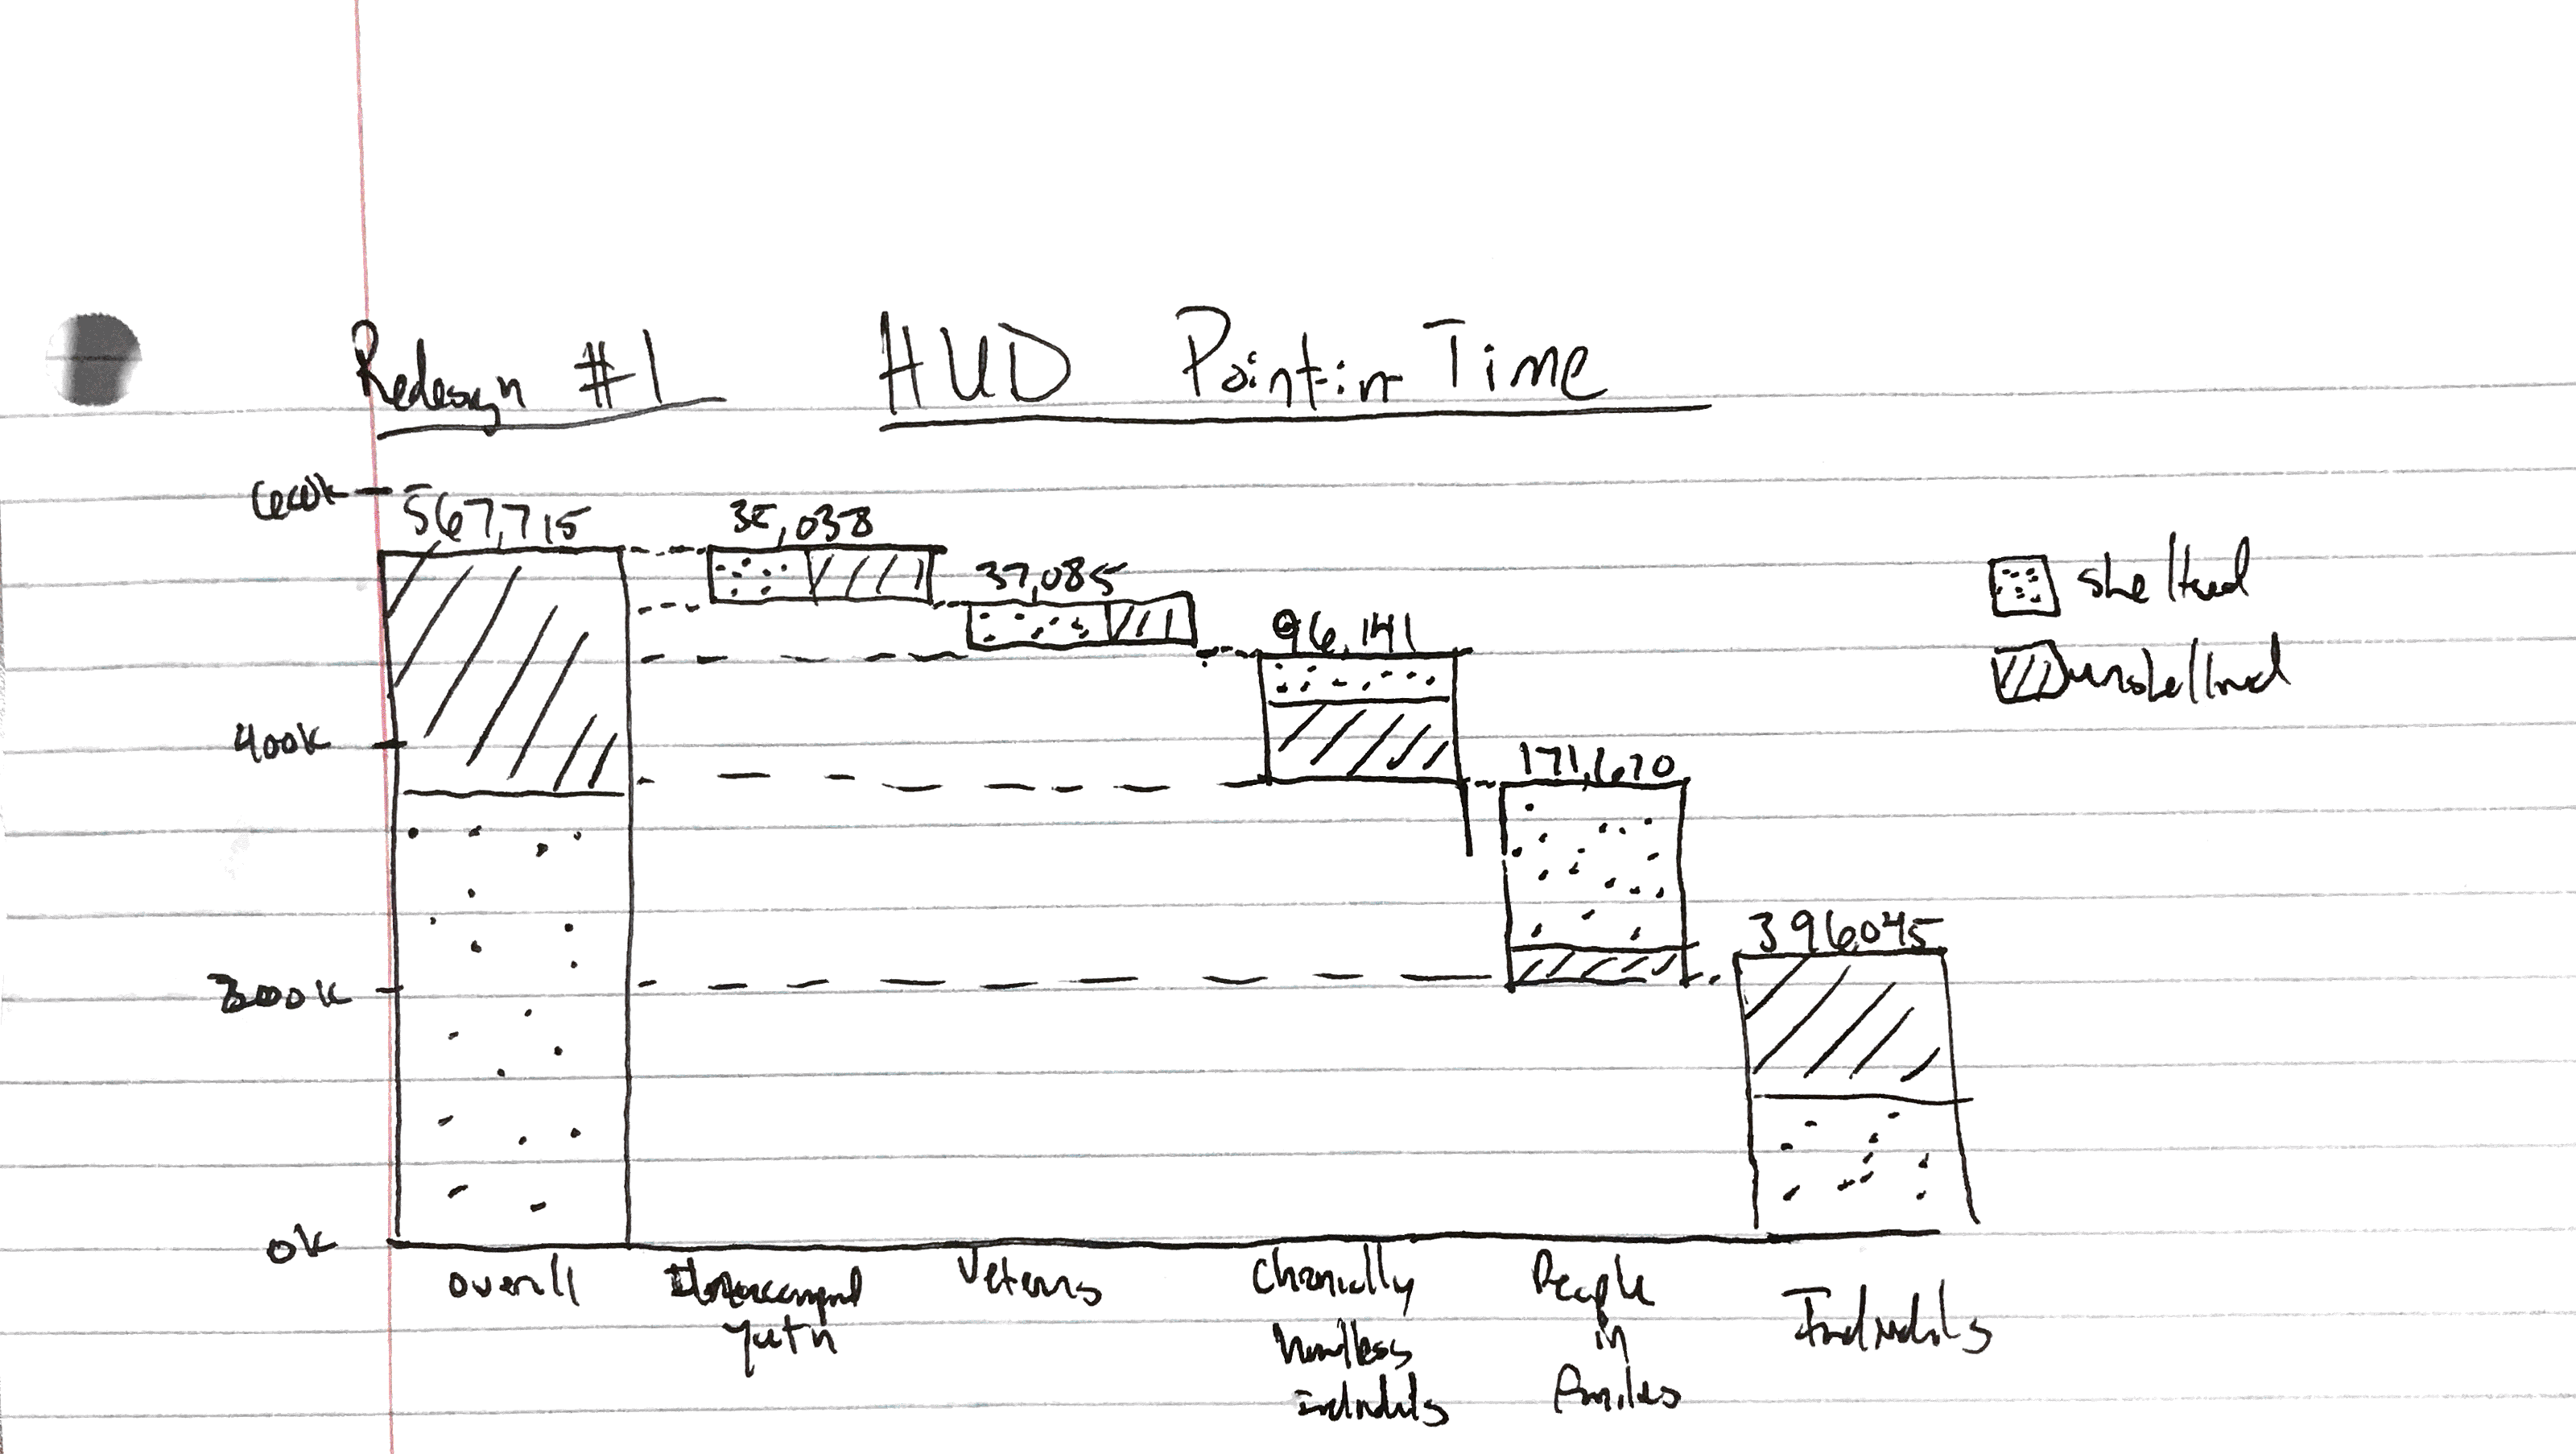 Redesign #1
HUD Point-in-Time
600k
567,715
35,038
37,085
96,141
171,670
396,045
400k
200k
0k
sheltered
unsheltered
overall
Unaccompanied
youth
Veterans
Chronically
homeless
individuals
People
in
families
Individuals